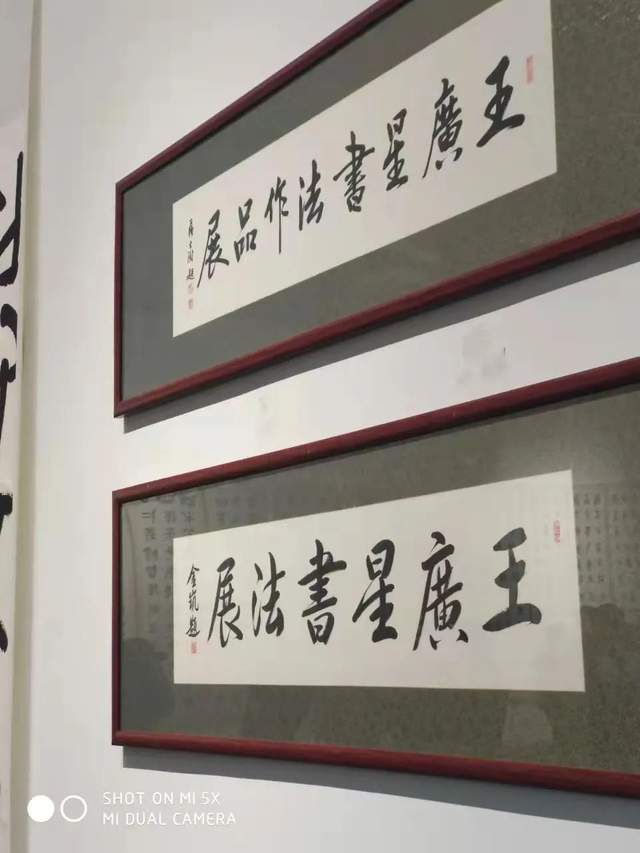 王廣星書法作品展
王廣星書法展
金凱題
SHOT ON MI 5X
MI DUAL CAMERA